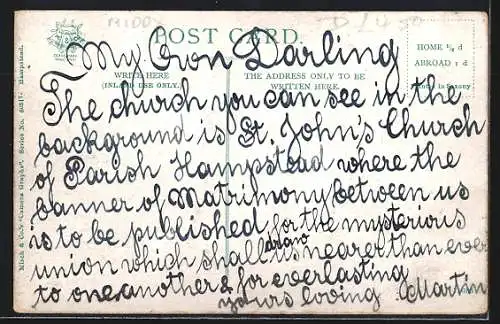 MIDDX
POST CARD.
My Own Darling
WRITE HERE
(INLAND USE ONLY.)
THE ADDRESS ONLY TO BE
WRITTEN HERE.
HOME ½ d
ABROAD 1 d
in Saxony
The church you can see in the
background is St. John's Church
of Parish Hampstead where the
banner of Matrimony between us
is to be published for the mysterious
union which shall draw us nearer than ever
to one another & for everlasting
yours loving Martin
Misch & Co.'s "Camera Graphs". Series No. Hampstead.